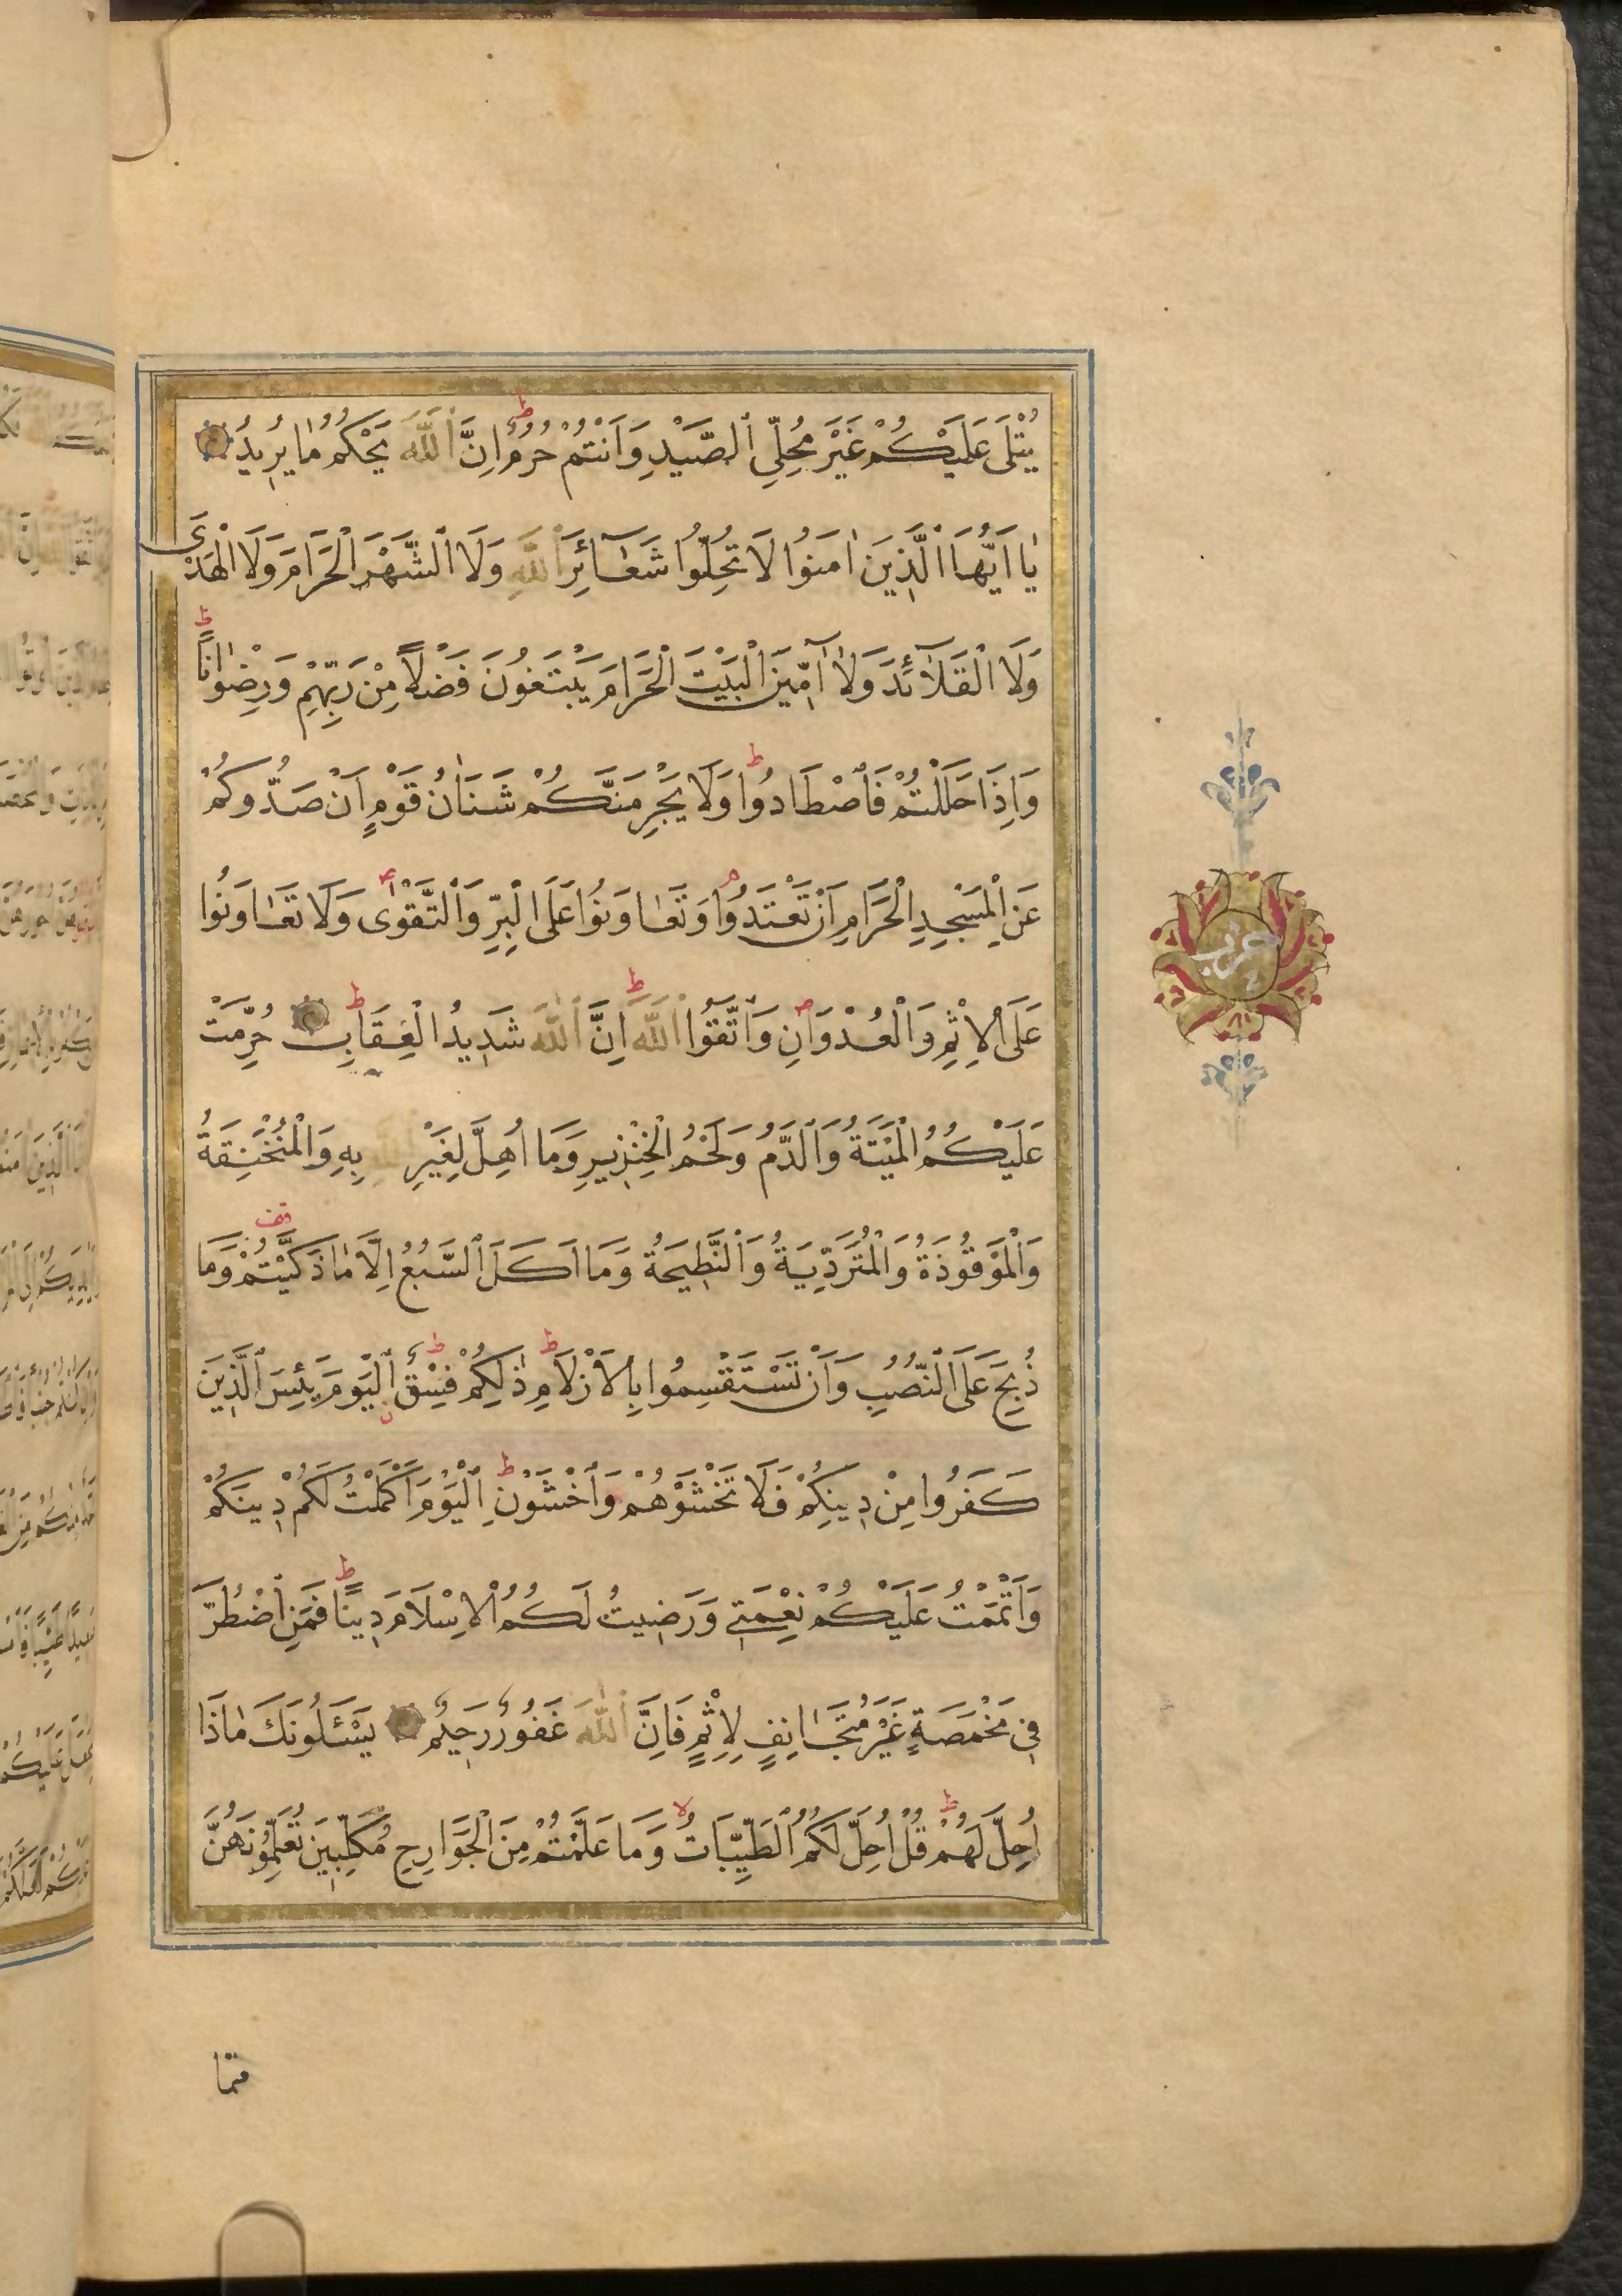 يُتْلَى عَلَيْكُمْ غَيْرَ مُحِلِّي ٱلصَّيْدِ وَاَنْتُمْ حُرُمٌ اِنَّ ٱللَّهَ يَحْكُمُ مَا يُرِيدُ
يَا اَيُّهَا ٱلَّذِينَ اٰمَنُوا لَا تُحِلُّوا شَعَآئِرَ ٱللَّهِ وَلَا ٱلشَّهْرَ الْحَرَامَ وَلَا الْهَدْيَ
وَلَا الْقَلَآئِدَ وَلَا آمِّينَ الْبَيْتَ الْحَرَامَ يَبْتَغُونَ فَضْلًا مِنْ رَبِّهِمْ وَرِضْوَانًا
وَاِذَا حَلَلْتُمْ فَاصْطَادُوا وَلَا يَجْرِمَنَّكُمْ شَنَاٰنُ قَوْمٍ اَنْ صَدُّوكُمْ
عَنِ الْمَسْجِدِ الْحَرَامِ اَنْ تَعْتَدُوا وَتَعَاوَنُوا عَلَى الْبِرِّ وَٱلتَّقْوَى وَلَا تَعَاوَنُوا
عَلَى الْاِثْمِ وَالْعُدْوَانِ وَٱتَّقُوا ٱللَّهَ اِنَّ ٱللَّهَ شَدِيدُ الْعِقَابِ حُرِّمَتْ
عَلَيْكُمُ الْمَيْتَةُ وَٱلدَّمُ وَلَحْمُ الْخِنْزِيرِ وَمَا اُهِلَّ لِغَيْرِ بِهِ وَالْمُنْخَنِقَةُ
وَالْمَوْقُوذَةُ وَالْمُتَرَدِّيَةُ وَٱلنَّطِيحَةُ وَمَا اَكَلَ ٱلسَّبُعُ اِلَّا مَا ذَكَّيْتُمْ وَمَا
ذُبِحَ عَلَى ٱلنُّصُبِ وَاَنْ تَسْتَقْسِمُوا بِالْاَزْلَامِ ذٰلِكُمْ فِسْقٌ اَلْيَوْمَ يَئِسَ ٱلَّذِينَ
كَفَرُوا مِنْ دِينِكُمْ فَلَا تَخْشَوْهُمْ وَٱخْشَوْنِ اَلْيَوْمَ اَكْمَلْتُ لَكُمْ دِينَكُمْ
وَاَتْمَمْتُ عَلَيْكُمْ نِعْمَتِي وَرَضِيتُ لَكُمُ الْاِسْلَامَ دِينًا فَمَنِ ٱضْطُرَّ
فِي مَخْمَصَةٍ غَيْرَ مُتَجَانِفٍ لِاِثْمٍ فَاِنَّ ٱللَّهَ غَفُورٌ رَحِيمٌ يَسْئَلُونَكَ مَاذَا
اُحِلَّ لَهُمْ قُلْ اُحِلَّ لَكُمُ ٱلطَّيِّبَاتُ وَمَا عَلَّمْتُمْ مِنَ الْجَوَارِحِ مُكَلِّبِينَ تُعَلِّمُونَهُنَّ
حزب
مما